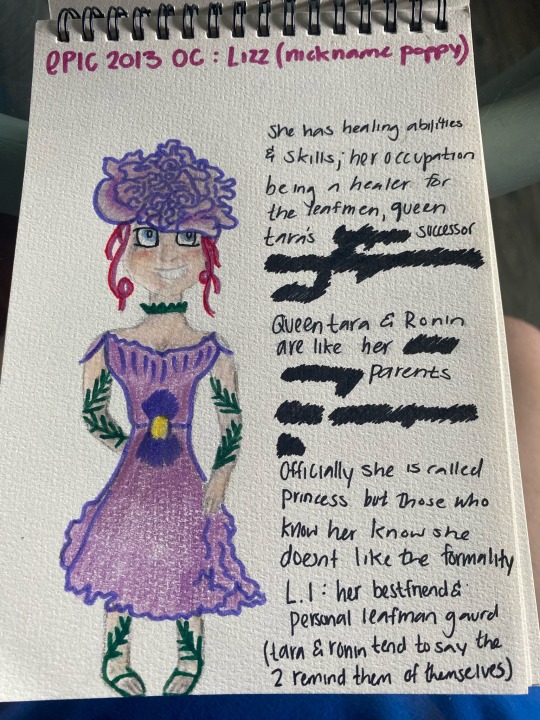 EPIC 2013 OC : Lizz (nickname poppy)
She has healing abilities
& skills; her occupation
being a healer for
the leafmen, queen
tara's successor
Queen tara & Ronin
are like her
parents
Officially she is called
Princess but those who
know her know she
doesnt like the formality
L.I : her bestfriend &
personal leafman gaurd
(tara & ronin tend to say the
2 remind them of themselves)